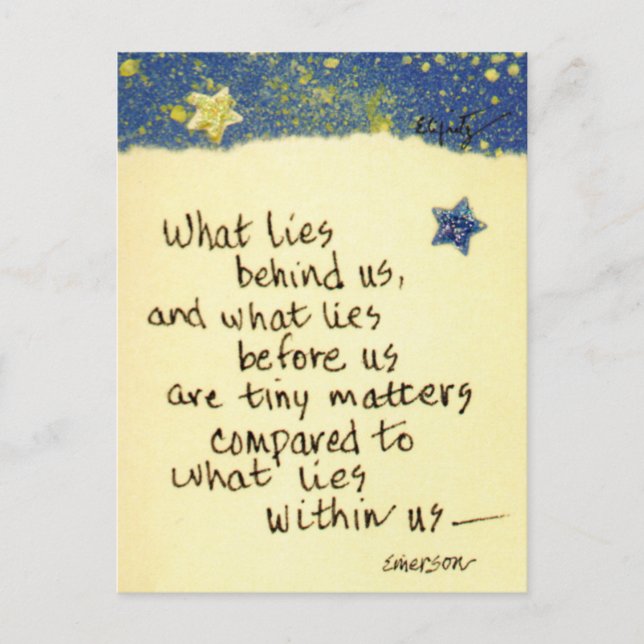 What lies
behind us,
and what lies
before us
are tiny matters
compared to
what lies
within us —
Emerson